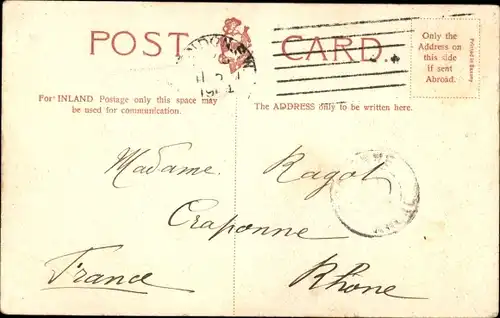 POST CARD.
LONDON. S.W.
Only the
Address on
this side
if sent
Abroad.
Printed in Saxony
For INLAND Postage only this space may
be used for communication.
The ADDRESS only to be written here.
Madame Ragot
Craponne
France Rhône